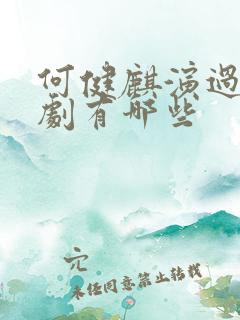 何健麒演過
劇有哪些
穴
未经同意禁止转载